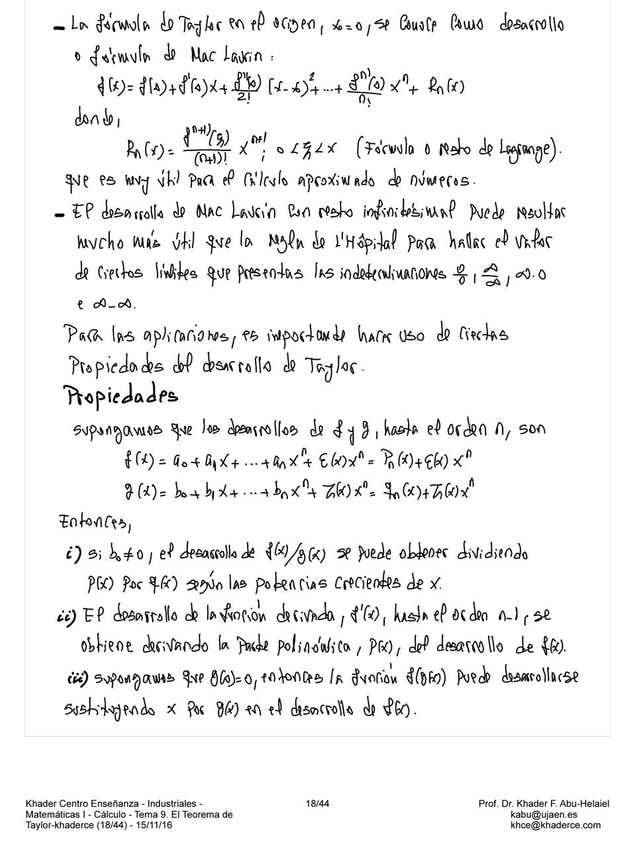 - La fórmula de Taylor en el origen, x₀=0, se conoce como desarrollo
o fórmula de Mac Laurin:
f(x) = f(0) + f'(0) x + f''(0)/2! (x-x₀)² + ... + fⁿ⁾(0)/n! xⁿ + Rn(x)
donde,
Rn(x) = fⁿ⁺¹⁾(ξ)/(n+1)! xⁿ⁺¹; 0<ξ<x (Fórmula o resto de Lagrange).
que es muy útil para el cálculo aproximado de números.
- El desarrollo de Mac Laurin con resto infinitésimal puede resultar
mucho más útil que la regla de L'Hôpital para hallar el valor
de ciertos límites que presentas las indeterminaciones 0/0, ∞/∞, ∞·0
e ∞-∞.
Para las aplicaciones, es importante hacer uso de ciertas
propiedades del desarrollo de Taylor.
Propiedades
supongamos que los desarrollos de f y g, hasta el orden n, son
f(x) = a₀ + a₁x + ... + aₙxⁿ + ε(x)xⁿ = Pn(x) + ε(x) xⁿ
g(x) = b₀ + b₁x + ... + bₙxⁿ + η(x)xⁿ = qn(x) + η(x)xⁿ
Entonces,
i) si b₀≠0, el desarrollo de f(x)/g(x) se puede obtener dividiendo
P(x) por q(x) según las potencias crecientes de x.
ii) El desarrollo de la función derivada, f'(x), hasta el orden n-1, se
obtiene derivando la parte polinómica, P(x), del desarrollo de f(x).
iii) supongamos que g(0)=0, entonces la función f(g(x)) puede desarrollarse
sustituyendo x por g(x) en el desarrollo de f(x).
Khader Centro Enseñanza - Industriales -
Matemáticas I - Cálculo - Tema 9. El Teorema de
Taylor-khaderce (18/44) - 15/11/16
18/44
Prof. Dr. Khader F. Abu-Helaiel
kabu@ujaen.es
khce@khaderce.com